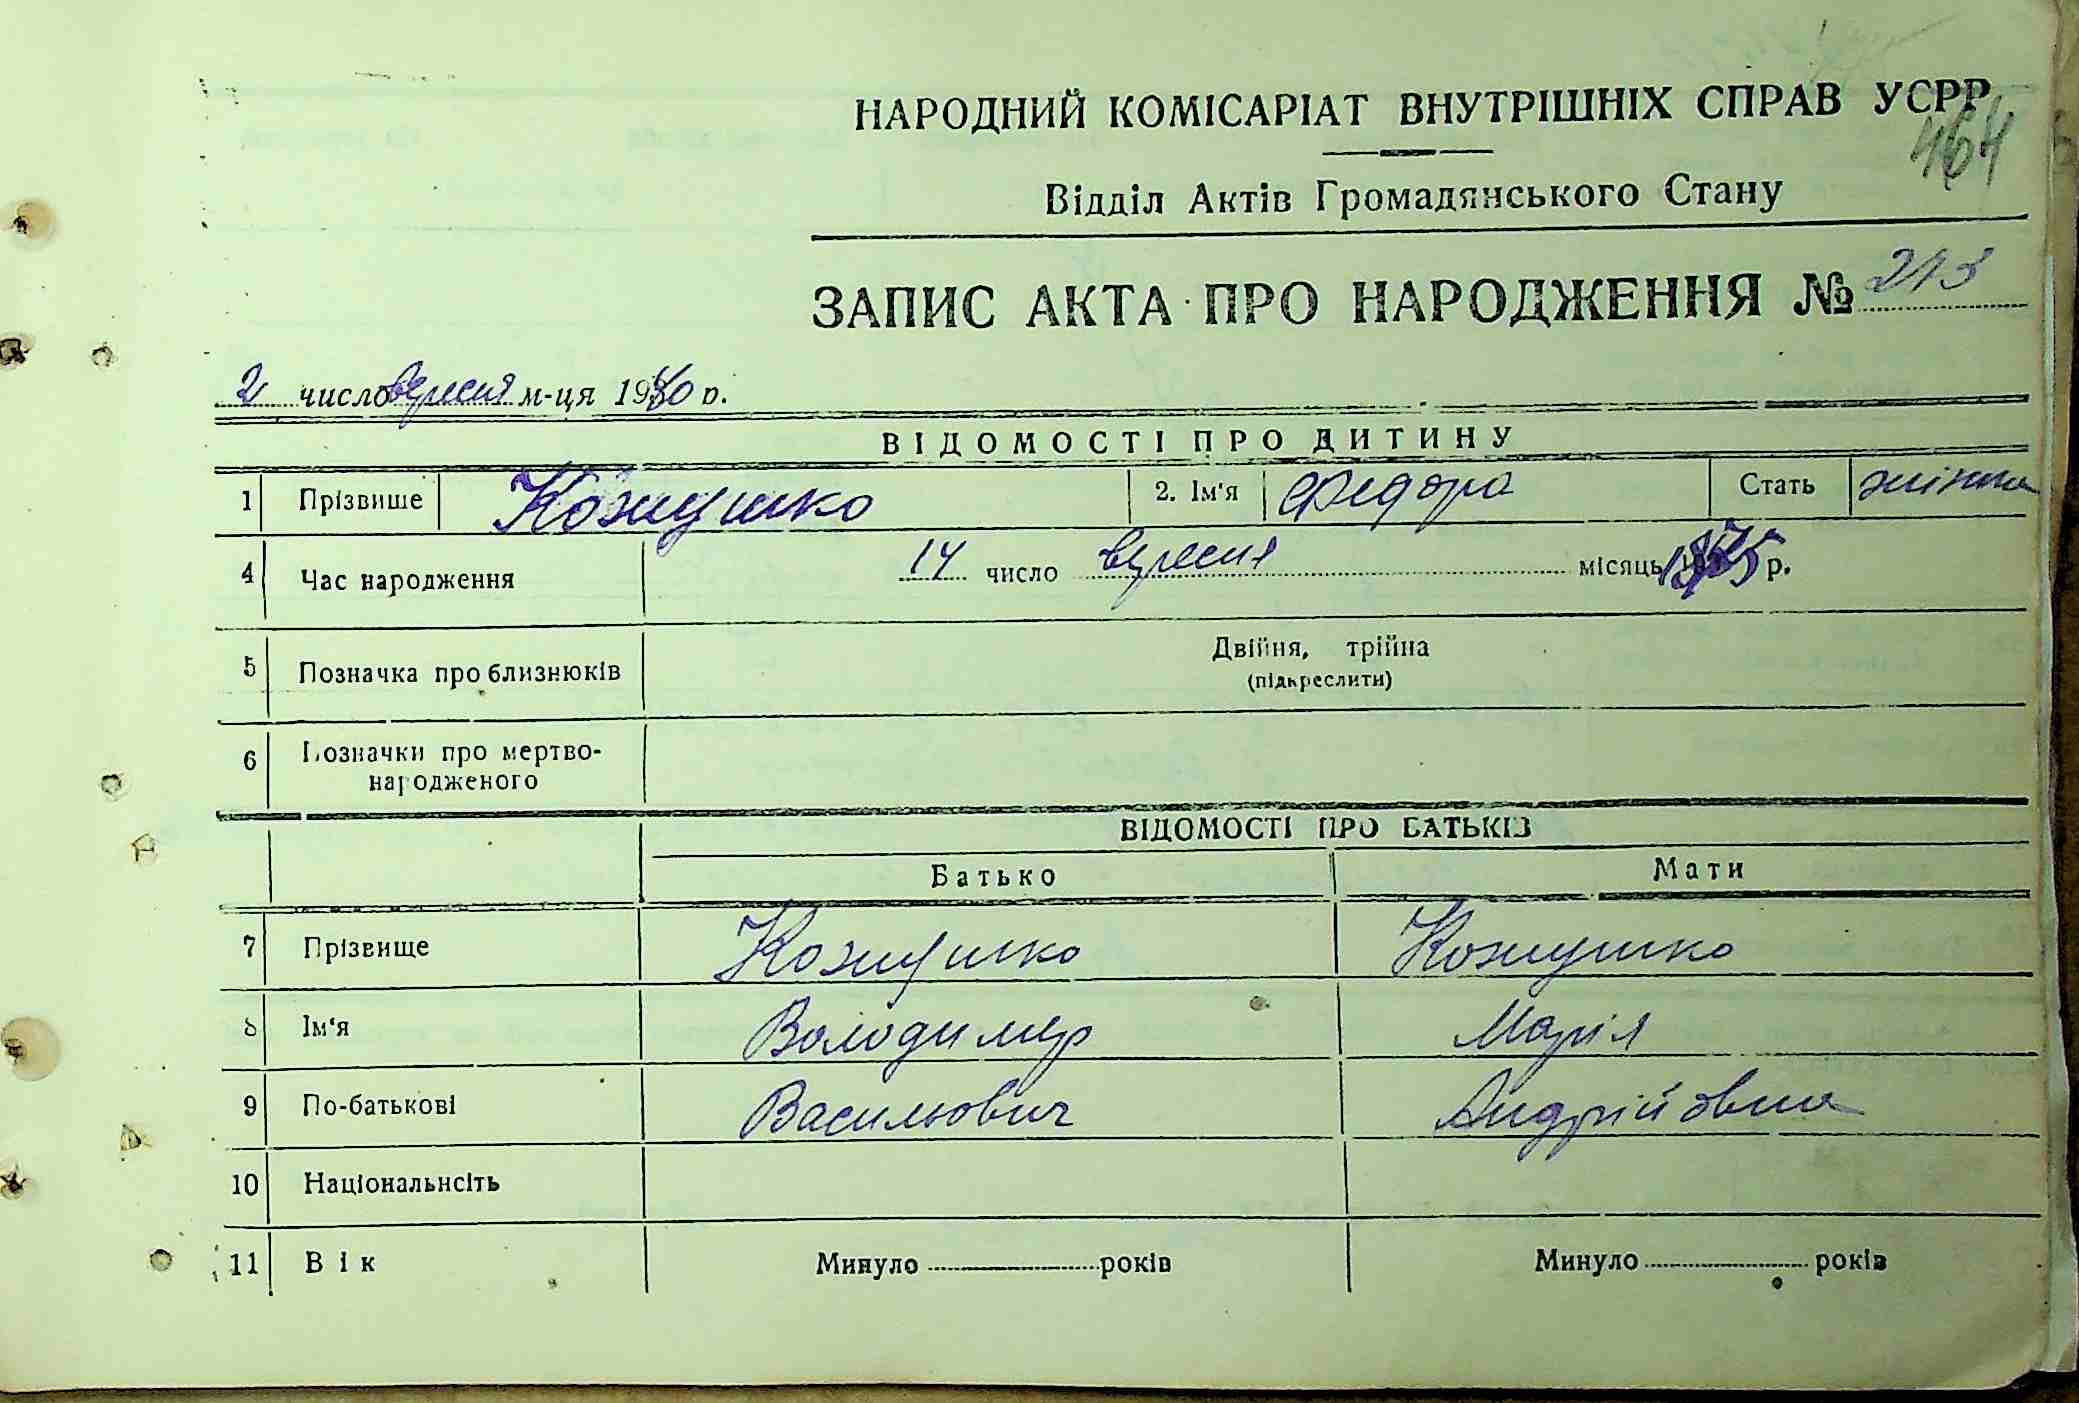 НАРОДНИЙ КОМІСАРІАТ ВНУТРІШНІХ СПРАВ УСРР
464
Відділ Актів Громадянського Стану
ЗАПИС АКТА ПРО НАРОДЖЕННЯ № 213
2 число вересня м-ця 1940 р.
ВІДОМОСТІ ПРО ДИТИНУ
1 Прізвише Кожушко 2. Ім'я Федора Стать жіноча
4 Час народження 14 число вересня місяць р.
5 Позначка про близнюків Двійня, трійна
(підкреслити)
6 Позначки про мертво-
народженого
ВІДОМОСТІ ПРО БАТЬКІВ
Батько Мати
7 Прізвище Кожушко Кожушко
8 Ім'я Володимир Марія
9 По-батькові Васильович Андрійовна
10 Національнсіть
11 Вік Минуло років Минуло років